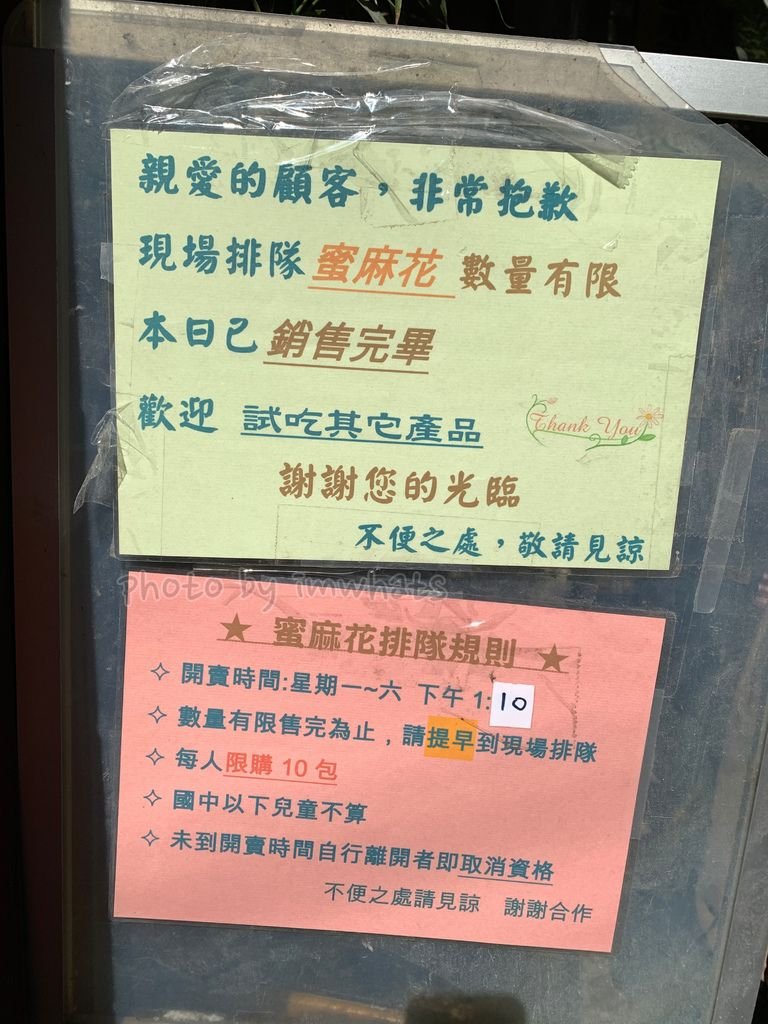 親愛的顧客，非常抱歉
現場排隊 蜜麻花 數量有限
本日已 銷售完畢
歡迎 試吃其它產品
Thank You
謝謝您的光臨
不便之處，敬請見諒
photo by imwhats
★ 蜜麻花排隊規則 ★
✧ 開賣時間:星期一~六 下午 1:10
✧ 數量有限售完為止，請提早到現場排隊
✧ 每人限購 10 包
✧ 國中以下兒童不算
✧ 未到開賣時間自行離開者即取消資格
不便之處請見諒 謝謝合作